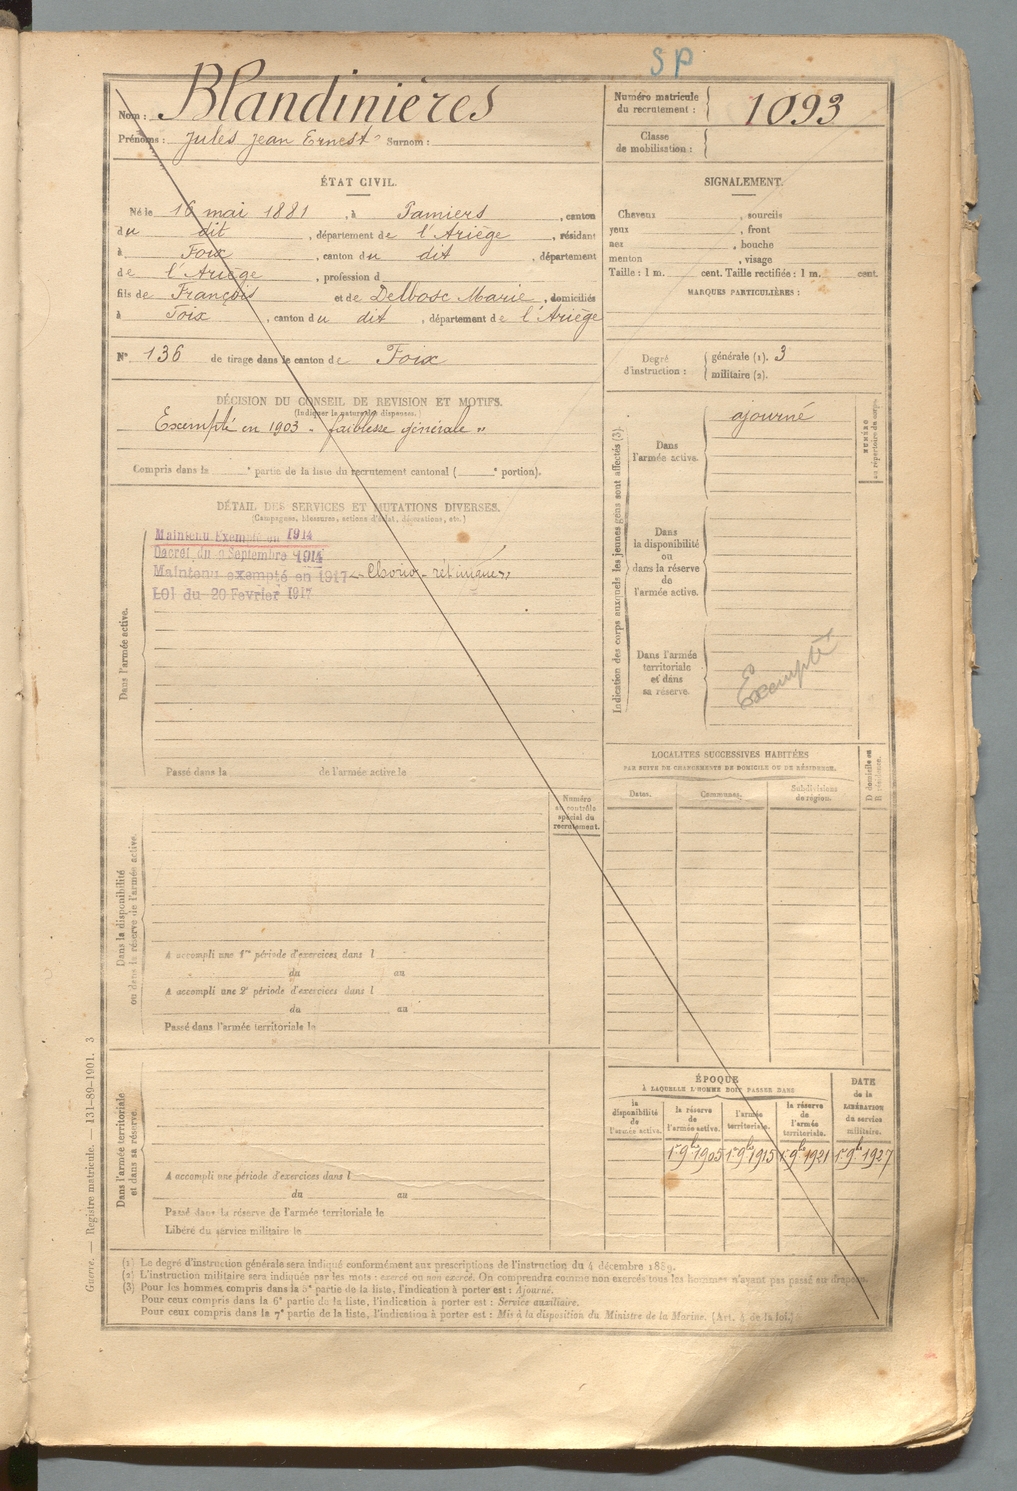 SP
Nom : Blandinières
Prénoms : Jules Jean Ernest Surnom :
Numéro matricule du recrutement : 1093
Classe de mobilisation :
ÉTAT CIVIL.
Né le 16 mai 1881, à Pamiers, canton
du dit, département de l'Ariège, résidant
à Foix, canton du dit, département
de l'Ariège, profession d
fils de François et de Delbosc Marie, domiciliés
à Foix, canton du dit, département de l'Ariège
N° 136 de tirage dans le canton de Foix
SIGNALEMENT.
Cheveux , sourcils
yeux , front
nez , bouche
menton , visage
Taille : 1 m. cent. Taille rectifiée : 1 m. cent.
MARQUES PARTICULIÈRES :
Degré d'instruction : générale (1). 3
militaire (2).
DÉCISION DU CONSEIL DE REVISION ET MOTIFS.
(Indiquer la nature des dispenses.)
Exempté en 1903 - faiblesse générale "
Compris dans la e partie de la liste du recrutement cantonal ( e portion).
DÉTAIL DES SERVICES ET MUTATIONS DIVERSES.
(Campagnes, blessures, actions d'éclat, décorations, etc.)
Dans l'armée active.
Maintenu Exempté en 1914
Décret du 9 Septembre 1914
Maintenu exempté en 1917
LOI du 20 Février 1917
Passé dans la de l'armée active le
Indication des corps auxquels les jeunes gens sont affectés (3).
NUMÉRO
au répertoire du corps.
Dans
l'armée active.
ajourné
Dans
la disponibilité
ou
dans la réserve
de
l'armée active.
Dans l'armée
territoriale
et dans
sa réserve.
Exempté
LOCALITÉS SUCCESSIVES HABITÉES
PAR SUITE DE CHANGEMENTS DE DOMICILE OU DE RÉSIDENCE.
Dates.
Communes.
Subdivisions
de région.
D domicile ou
R résidence.
Dans la disponibilité
ou dans la réserve de l'armée active.
Numéro
au contrôle
spécial du
recrutement.
A accompli une 1re période d'exercices dans l
du au
A accompli une 2e période d'exercices dans l
du au
Passé dans l'armée territoriale le
Dans l'armée territoriale
et dans sa réserve.
A accompli une période d'exercices dans l
du au
Passé dans la réserve de l'armée territoriale le
Libéré du service militaire le
ÉPOQUE
À LAQUELLE L'HOMME DOIT PASSER DANS
la
disponibilité
de
l'armée active.
la réserve
de
l'armée active.
l'armée
territoriale.
la réserve
de
l'armée
territoriale.
DATE
de la
LIBÉRATION
du service
militaire.
1er 9bre 1905 1er 9bre 1915 1er 9bre 1921 1er 9bre 1927
(1) Le degré d'instruction générale sera indiqué conformément aux prescriptions de l'instruction du 4 décembre 1889.
(2) L'instruction militaire sera indiquée par les mots : exercé ou non exercé. On comprendra comme non exercés tous les hommes n'ayant pas passé au drapeau.
(3) Pour les hommes compris dans la 5e partie de la liste, l'indication à porter est : Ajourné.
Pour ceux compris dans la 6e partie de la liste, l'indication à porter est : Service auxiliaire.
Pour ceux compris dans la 7e partie de la liste, l'indication à porter est : Mis à la disposition du Ministre de la Marine. (Art. 4 de la loi.)
Guerre. — Registre matricule. — 131-89-1901. 3